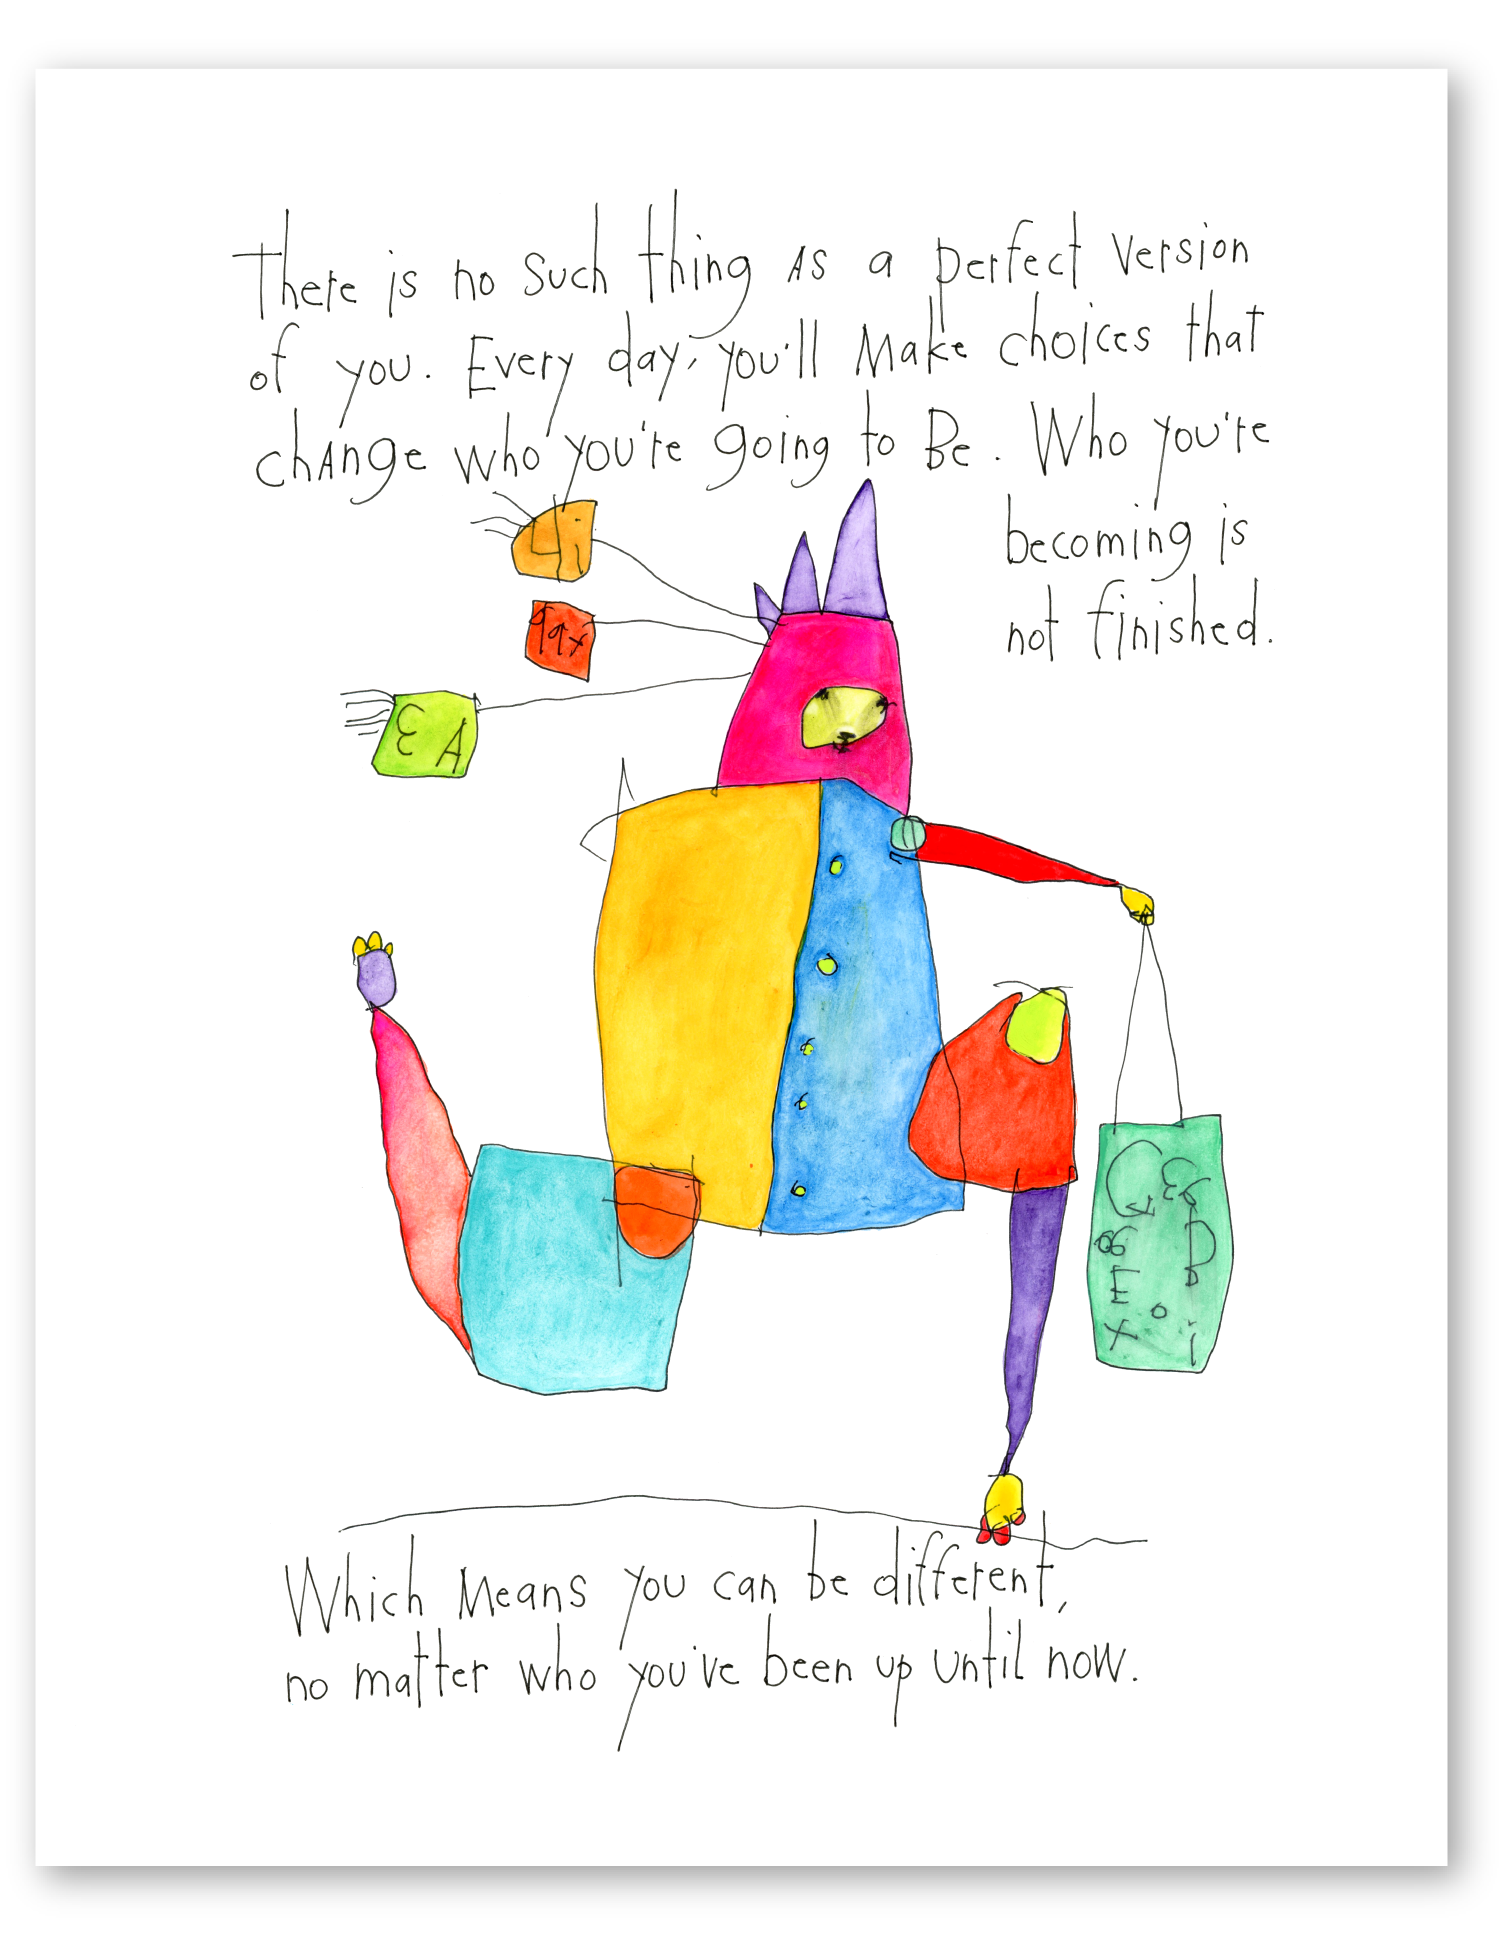 There is no such thing as a perfect version
of you. Every day, you'll make choices that
change who you're going to be. Who you're
becoming is
not finished.
Which means you can be different,
no matter who you've been up until now.